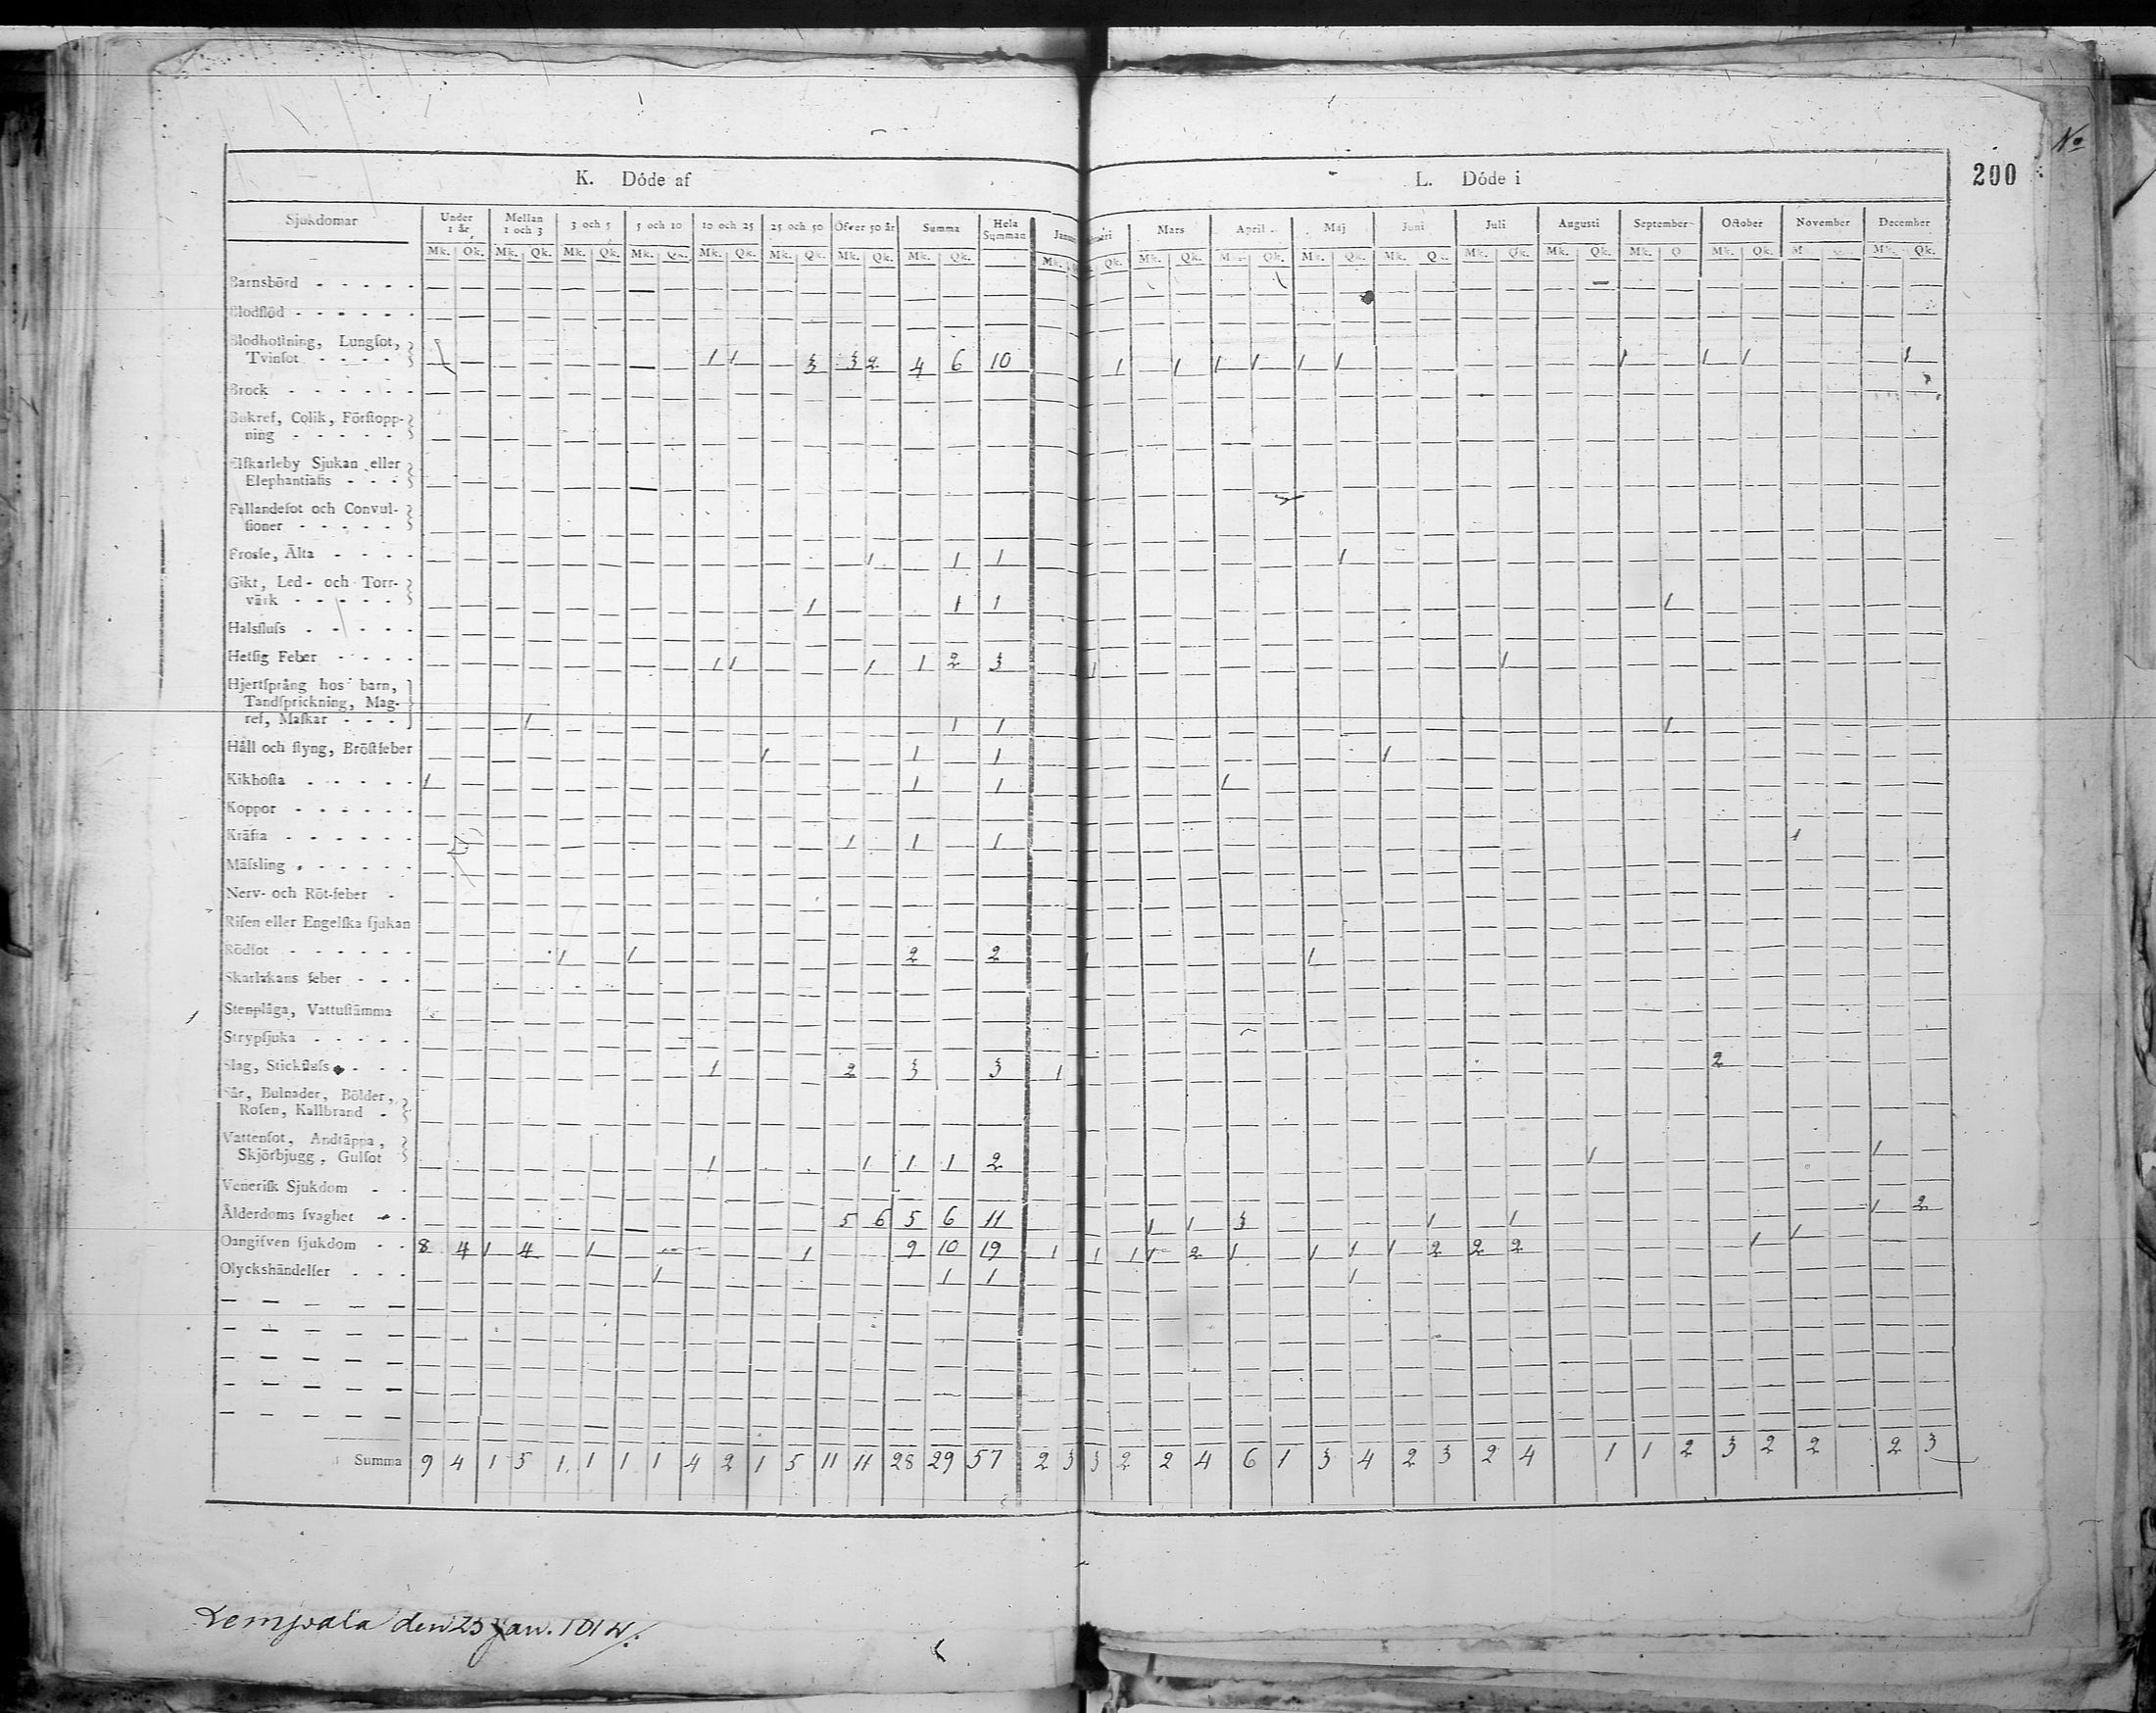 No
200
K. Döde af
L. Döde i
Sjukdomar Under 1 år. Mellan 1 och 3 3 och 5 5 och 10 10 och 25 25 och 50 Öfver 50 år Summa Hela Summan Januari Mars April Maj Juni Juli Augusti September October November December
Mk. Qk. Mk. Qk. Mk. Qk. Mk. Qk. Mk. Qk. Mk. Qk. Mk. Qk. Mk. Qk. Mk. Qk. Mk. Qk. Mk. Qk. Mk. Qk. Mk. Qk. Mk. Qk. Mk. Qk. Mk. Q Mk. Qk. M Mk. Qk.
Barnsbörd - - - - -
Blodflöd - - - - - -
Blodhoſtning, Lungſot,
Tvinſot - - - - 1 1 3 3 2 4 6 10 1 1 1 1 1 1 1 1 1 1
Brock - - - - - -
Bukref, Colik, Förſtopp-
ning - - - - -
Elſkarleby Sjukan eller
Elephantiaſis - - -
Fallandeſot och Convul-
ſioner - - - - -
Froſſe, Älta - - - - 1 1 1 1
Gikt, Led- och Torr-
värk - - - - - 1 1 1 1
Halsfluſs - - - - -
Hetſig Feber - - - - 1 1 1 1 2 3 1 1
Hjertſprång hos barn,
Tandſprickning, Mag-
ref, Maſkar - - - 1 1 1 1
Håll och ſtyng, Bröſtfeber 1 1 1 1
Kikhoſta - - - - - 1 1 1 1
Koppor - - - - - -
Kräfta - - - - - - 1 1 1 1
Mäſsling - - - - - -
Nerv- och Röt-feber -
Riſen eller Engelſka ſjukan
Rödſot - - - - - - 1 1 2 2 1 1
Skarlakans feber - - -
Stenplåga, Vattuſtämma
Strypſjuka - - - - -
Slag, Stickfluſs - - - 1 2 3 3 1 2
Sår, Bulnader, Bölder,
Roſen, Kallbrand -
Vattenſot, Andtäppa,
Skjörbjugg, Gulſot 1 1 1 1 2 1 1
Veneriſk Sjukdom - -
Ålderdoms ſvaghet - - 5 6 5 6 11 1 1 3 1 1 1 2
Oangifven ſjukdom - - 8 4 1 4 1 1 9 10 19 1 1 1 1 2 1 1 1 1 2 2 2 1 1
Olyckshändelſer - - - 1 1 1 1
Summa 9 4 1 5 1 1 1 1 4 2 1 5 11 11 28 29 57 2 3 3 2 2 4 6 1 3 4 2 3 2 4 1 1 2 3 2 2 2 3
Lempvala den 25 Jan. 1814